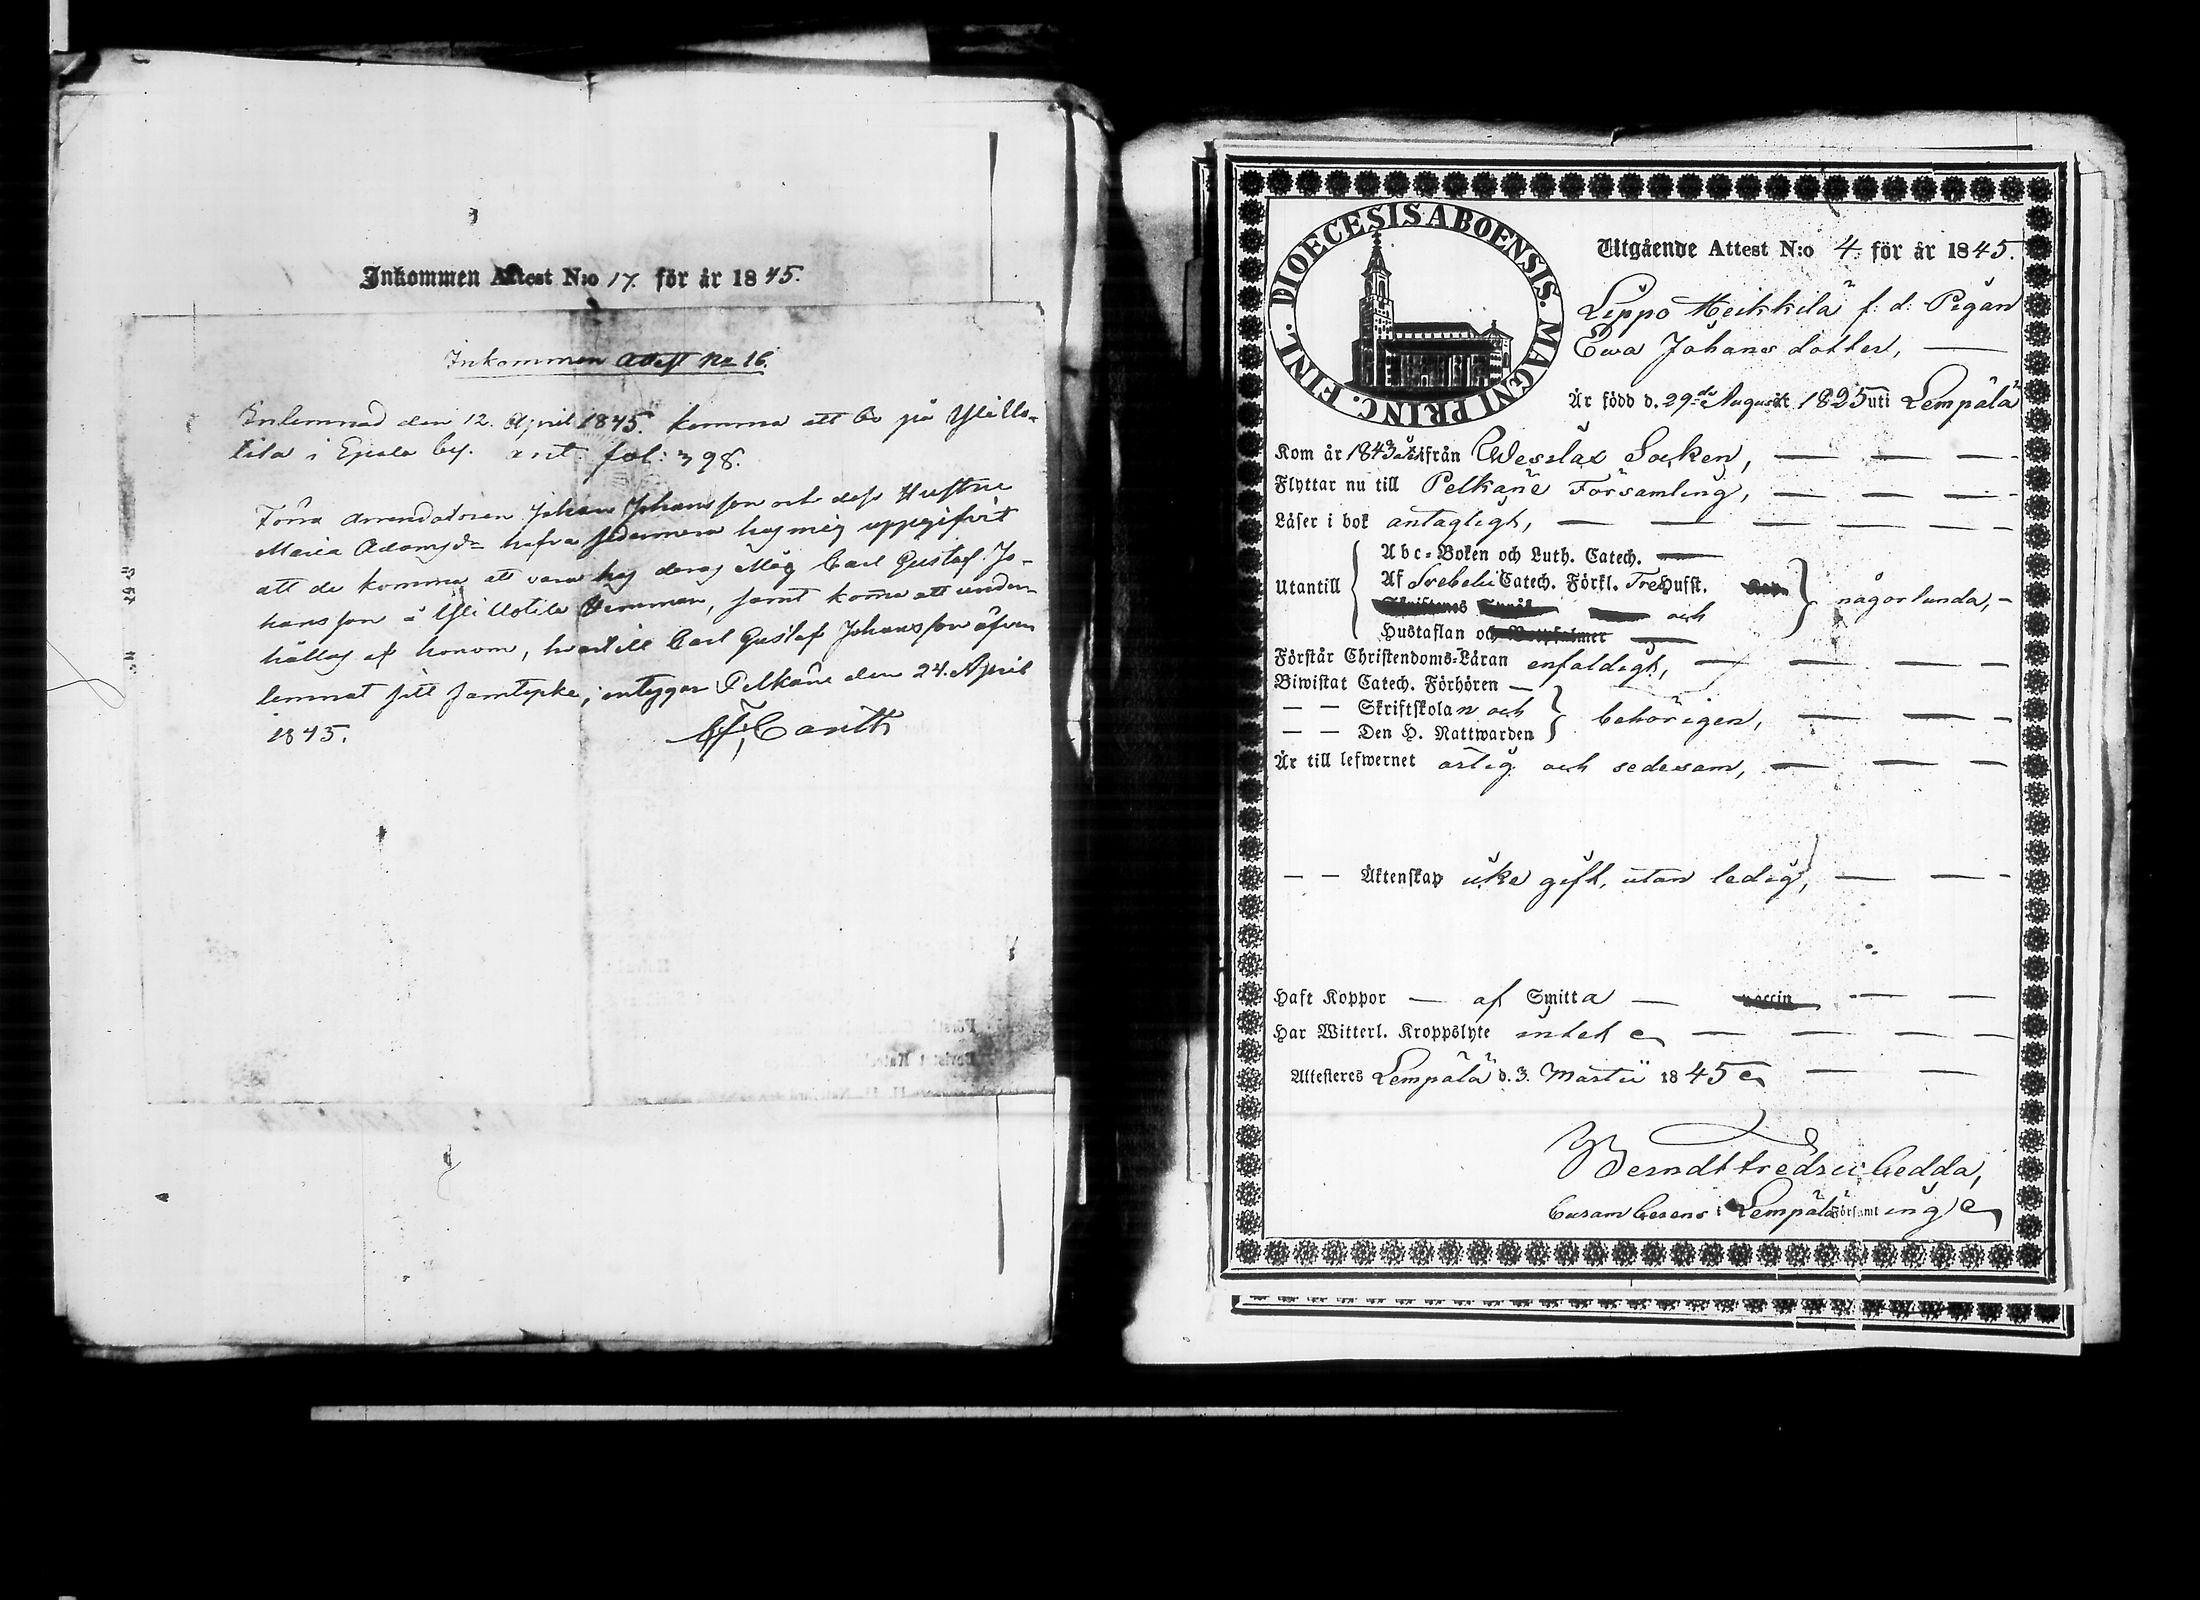 Inkommen Attest N:o 17. för år 1845.
Inkommen Attest No 16.
Inlemnad den 12. April 1845. komma att bo på Ylills-
tila i Epaala by. ant. fol: 398.
Förra Arrendatoren Johan Johansson och dess Hustru
Maria Adamsdr hafva sedermera hos mig uppgifvit
att de komma att vara hos deras Måg Carl Gustaf Jo-
hansson å Ylillstila Hemman, samt komma att under-
hållas af honom, hvartill Carl Gustaf Johansson äfven
lemnat sitt samtycke; intygar Pelkäne den 24. April
1845.
DIOECESIS ABOENSIS. MAGNI PRINC. FINL.
Utgående Attest N:o 4. för år 1845.
Lippo Heikkilä f. d. Pigan
Ewa Johans dotter,
Är född d. 29de August 1825 uti Lempälä
Kom år 1843 ifrån Wesilax Socken,
Flyttar nu till Pelkäne Församling,
Läser i bok antagligt,
Abc-Boken och Luth. Catech.
Utantill Af Svebelii Catech. Förkl. Tre Hufst. någorlunda,
och
Hustaflan och
Förstår Christendoms-Läran enfaldigt,
Biwistat Catech. Förhören
— — Skriftskolan och behörigen,
— — Den H. Nattwarden
Är till lefwernet ärlig och sedesam,
— — Äktenskap icke gift, utan ledig,
Haft Koppor — af Smitta — vaccin
Har Witterl. Kroppslyte intet
Attesteras Lempälä d. 3. Martii 1845
Berndt Fredric Gedda,
Curam Gerens i Lempälä Församling